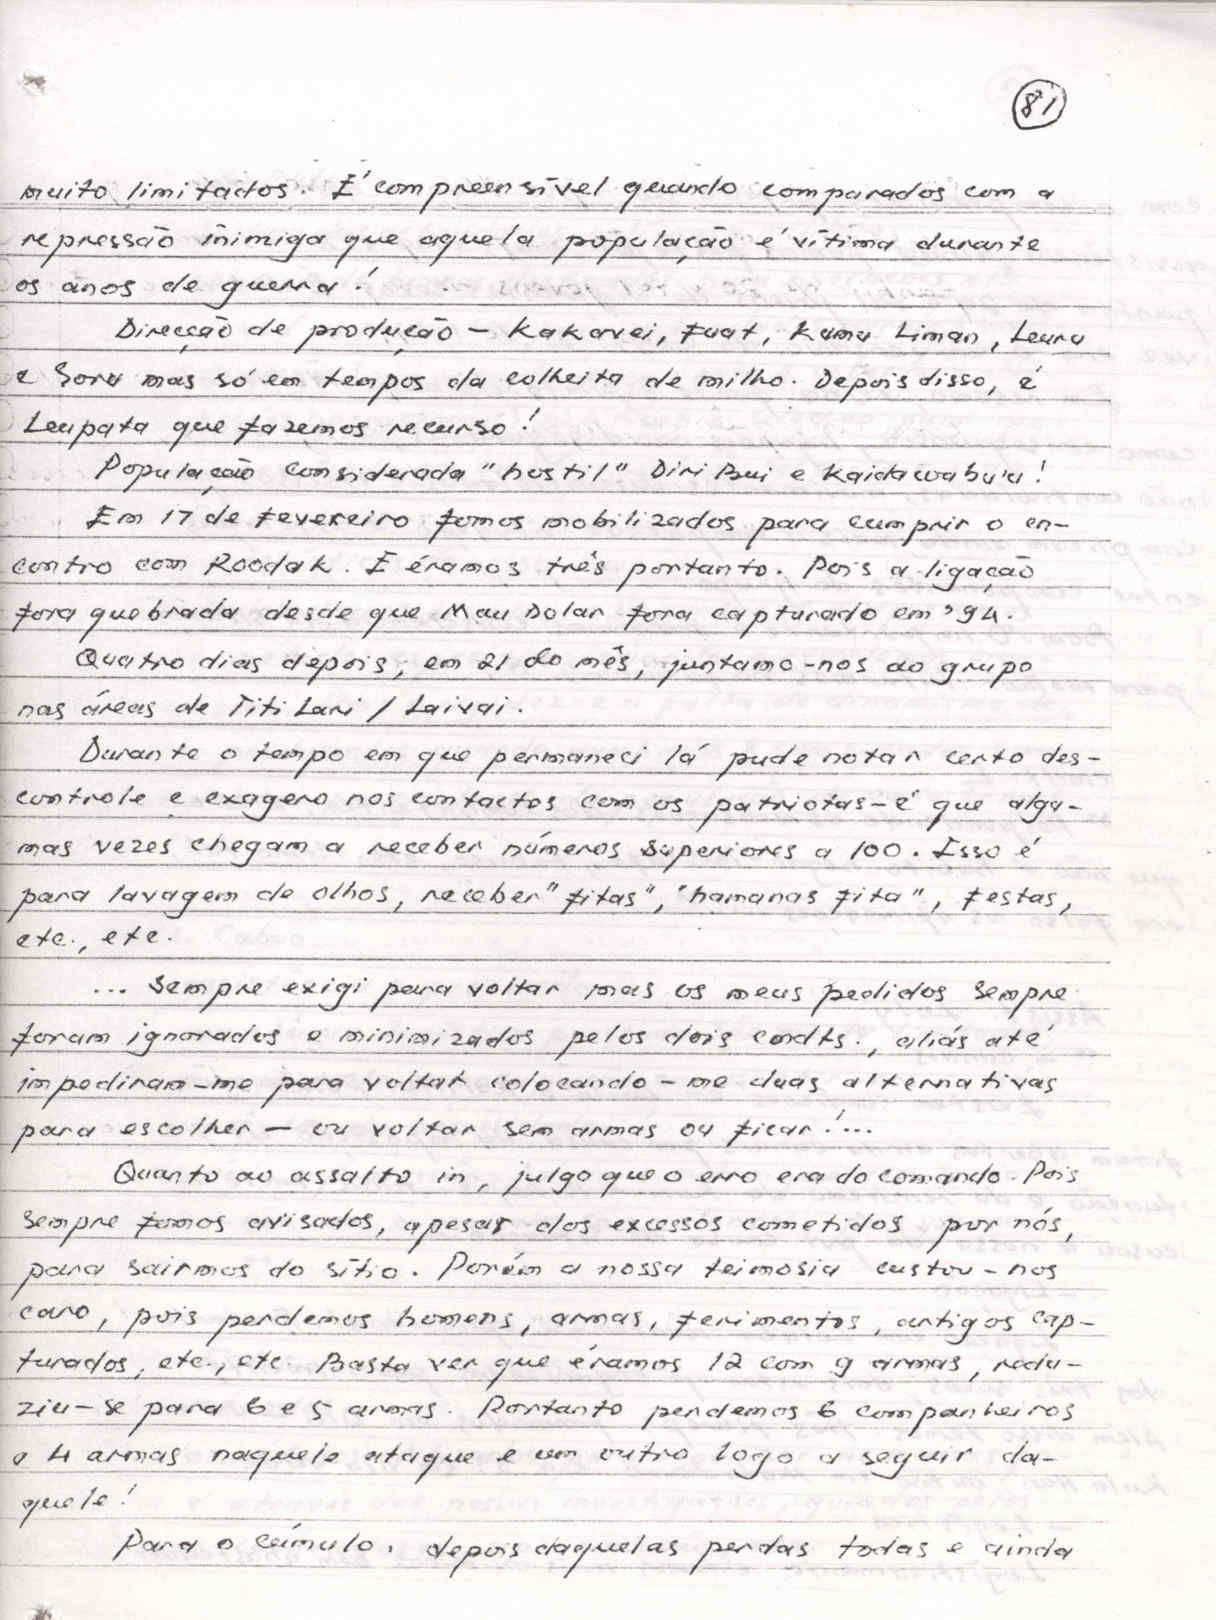 81
muito limitados. É compreensível quando comparados com a
repressão inimiga que aquela população é vítima durante
os anos de guerra!
Direcção de produção - Kakavei, Fuat, Kamu Liman, Leuru
e Soru mas só em tempos da colheita de milho. Depois disso, é
Leupata que fazemos recurso!
População considerada "hostil" Diri Bui e Kaidawabu'u!
Em 17 de Fevereiro fomos mobilizados para cumprir o en-
contro com Roodak. E éramos três portanto. Pois a ligação
fora quebrada desde que Mau Dolar fora capturado em '94.
Quatro dias depois, em 21 do mês, juntamo-nos ao grupo
nas áreas de Titi Lari / Laivai.
Durante o tempo em que permaneci lá pude notar certo des-
controle e exagero nos contactos com os patriotas - é que algu-
mas vezes chegam a receber números superiores a 100. Isso é
para lavagem de olhos, receber "fitas", "hamanas fita", festas,
etc., etc.
... Sempre exigi para voltar mas os meus pedidos sempre
foram ignorados e minimizados pelos dois cmdts., aliás até
impediram-me para voltar colocando-me duas alternativas
para escolher - ou voltar sem armas ou ficar!...
Quanto ao assalto in, julgo que o erro era do comando. Pois
sempre fomos avisados, apesar dos excessos cometidos por nós,
para sairmos do sítio. Porém a nossa teimosia custou-nos
caro, pois perdemos homens, armas, ferimentos, artigos cap-
turados, etc., etc. Basta ver que éramos 12 com 9 armas, redu-
ziu-se para 6 e 5 armas. Portanto perdemos 6 companheiros
e 4 armas naquele ataque e um outro logo a seguir da-
quele!
Para o cúmulo, depois daquelas perdas todas e ainda